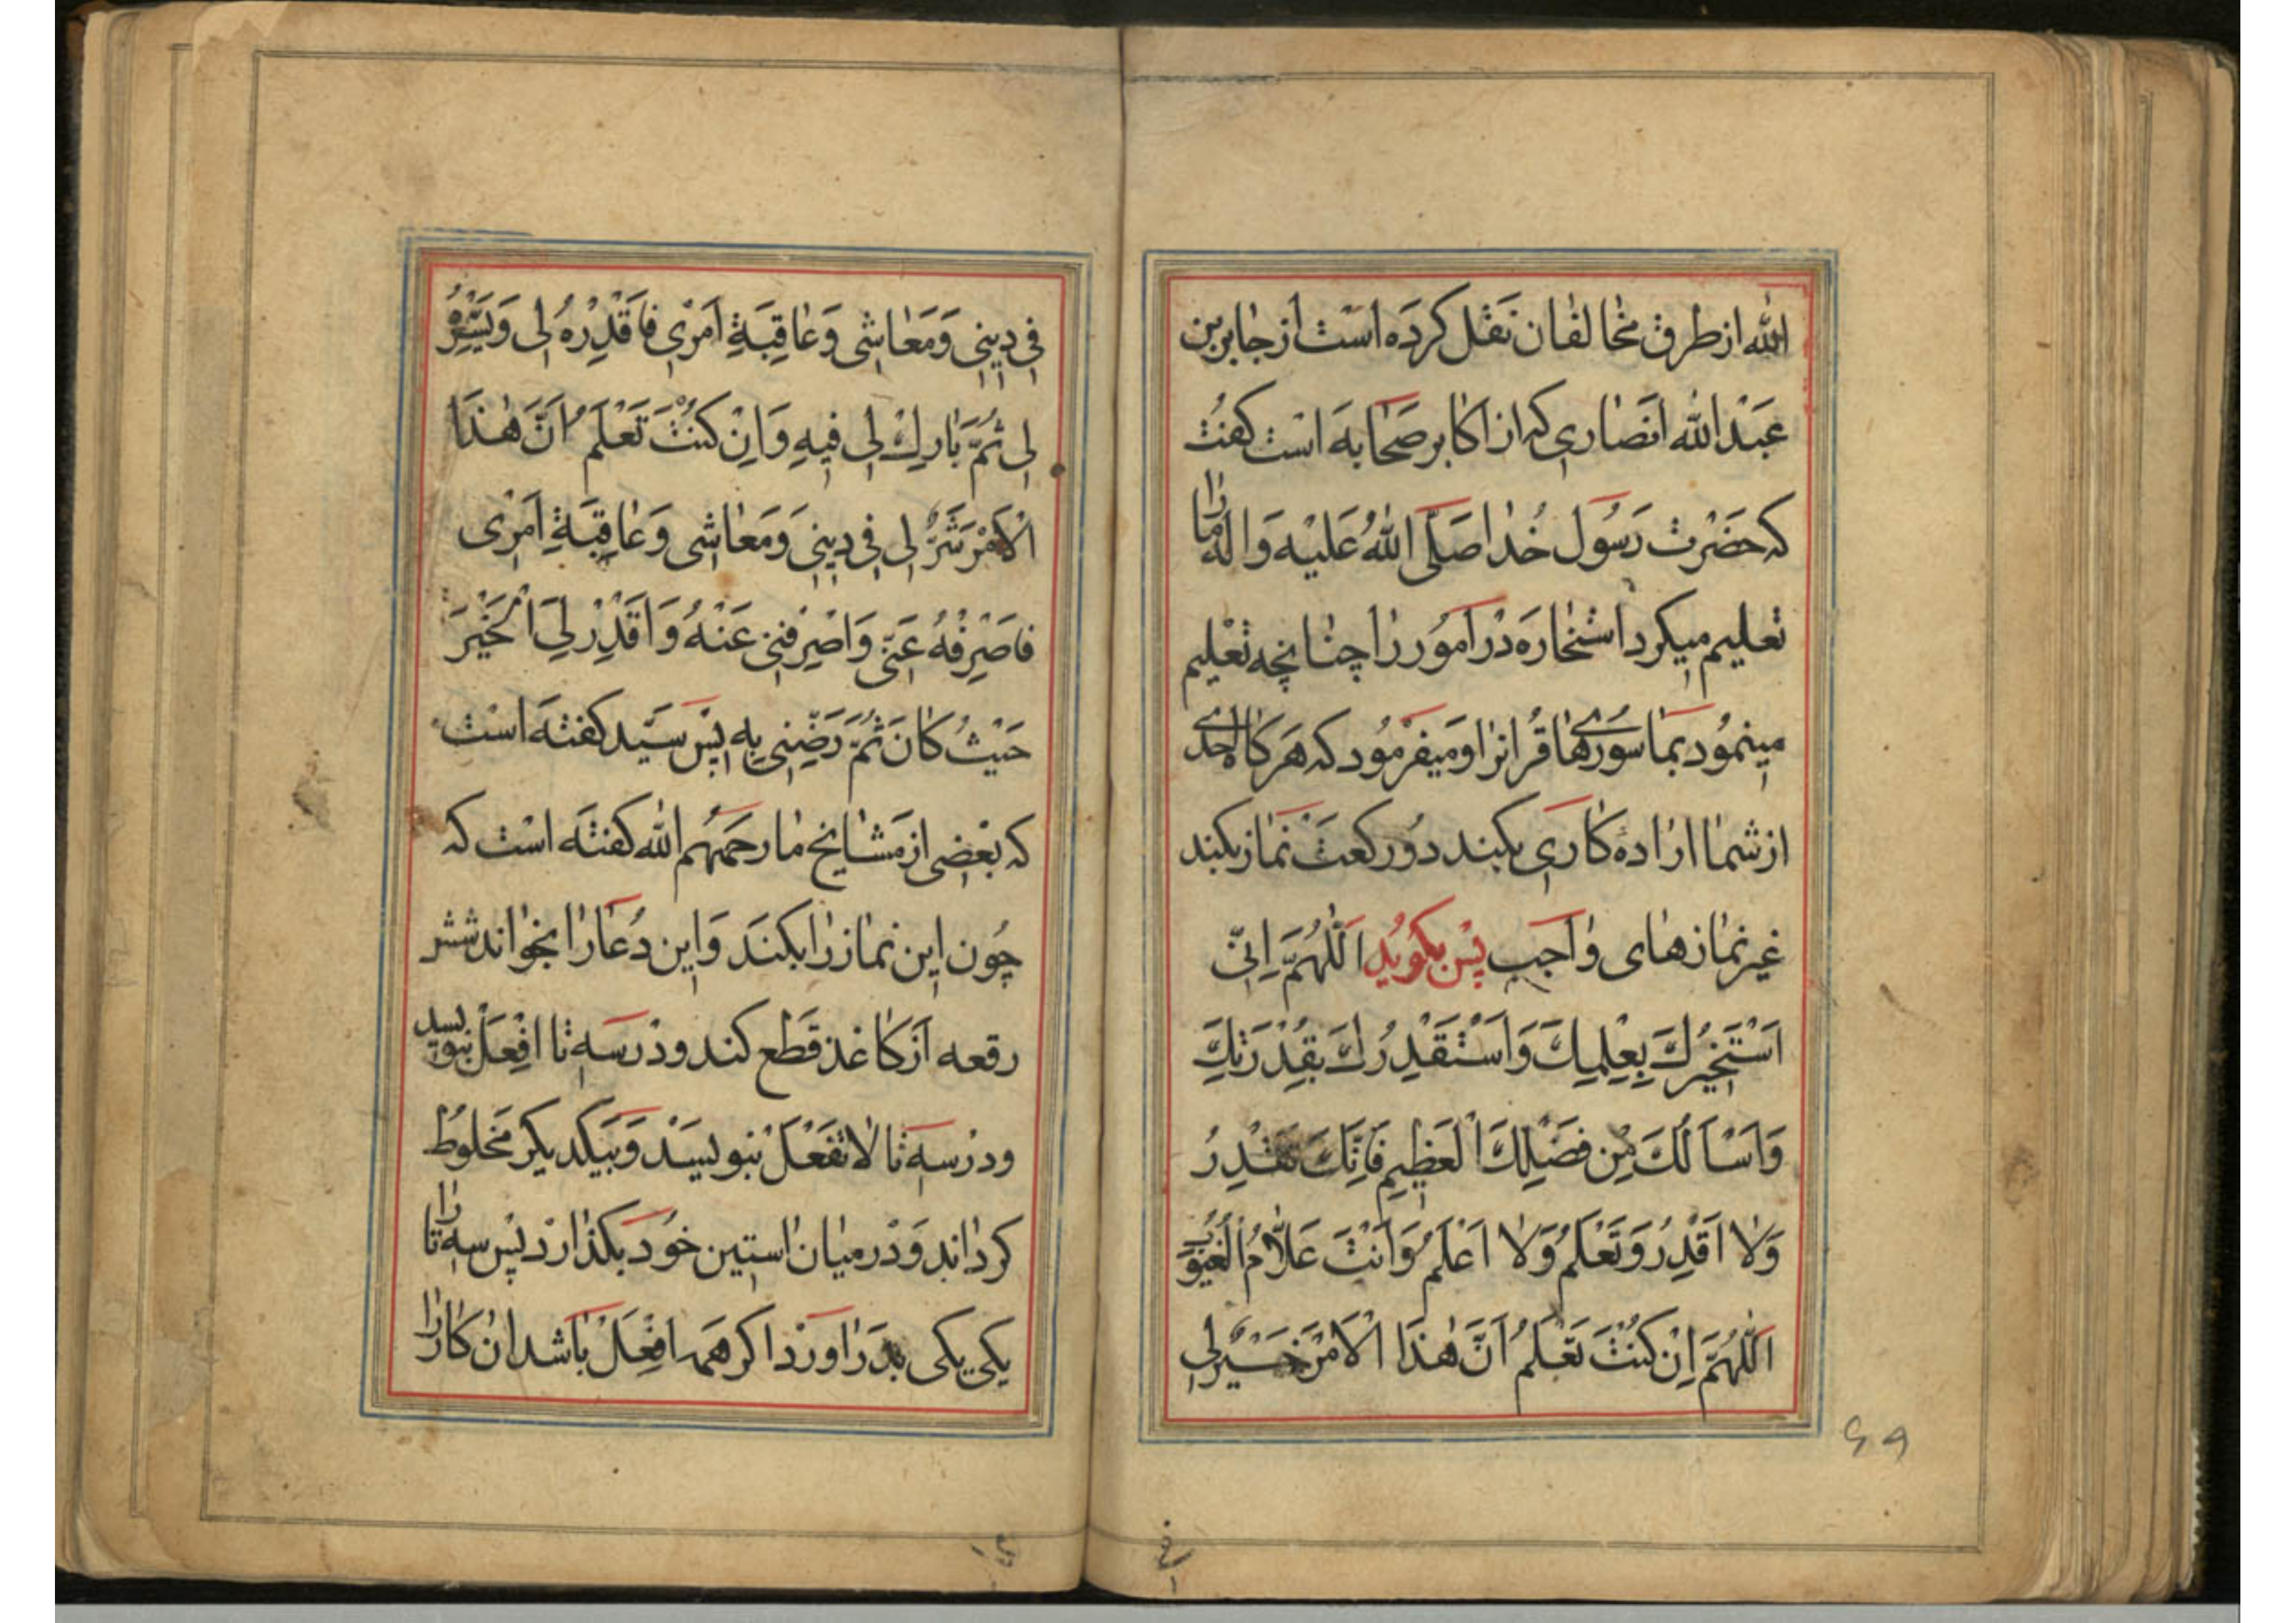 الله از طرق مخالفان نَقل کرَدَه است از جابر بن
عَبْدالله انَصاری که از اکابر صَحابَه است کفت
که حضَرْت رَسُول خُدا صَلَّی اللهُ عَلیْه وَالِه ما را
تعلیم میکرد استخارَه دَرْ اموُر را چنانچه تعْلیم
مینموُد بما سوُرهای قُرانرا و میفرْموُد که هَرکاه احدی
از شما ارادهٔ کاری بکند دوُ رکعَتْ نمَاز بکند
غیر نمازهای واجَب پسْ بکوُید اَللّٰهُمَّ اِنّی
اَسْتَخیرُكَ بِعِلْمِكَ وَاَسْتَقْدِرُكَ بِقُدْرَتِكَ
وَاَسْاَلُكَ مِن فَضْلِكَ الْعَظیمِ فَاِنَّكَ تَقْدِرُ
وَلا اَقْدِرُ وَتَعْلَمُ وَلا اَعْلَمُ وَاَنْتَ عَلّامُ الْغُیوُبِ
اَللّٰهُمَّ اِنْ کُنْتَ تَعْلَمُ اَنَّ هٰذَا الْاَمْرَ خَیْرٌ لی
۶۹
فی دینی وَمَعاشی وَعاقِبَةِ اَمْری فَاقْدِرْهُ لی وَیَسِّرْهُ
لی ثُمَّ بارِكْ لی فیهِ وَاِنْ کُنْتَ تَعْلَمُ اَنَّ هٰذَا
الْاَمْرَ شَرٌّ لی فی دینی وَمَعاشی وَعاقِبَةِ اَمْری
فَاصْرِفْهُ عَنّی وَاصْرِفْنی عَنْهُ وَاقْدِرْ لِیَ الْخَیْرَ
حَیْثُ کانَ ثُمَّ رَضِّنی بِه پسْ سَیّد کفتَه اسْت
که بَعْضی از مَشایخ ما رحمَهُم الله کفتَه است که
چُون این نماز را بکنَد وَاین دُعا را بخواند شش
رقعه از کاغذ قَطع کند و در سَه تا افِعَلْ بنویسد
و درْ سه تا لا تفَعَلْ بنویسَد وَبیَکدیکر مَخلوُط
کرداند وَدر میان استین خوُد بکذارَد پسْ سه تا را
یکی یکی بدَر اورَد اکر همَه افعَلْ باشد ان کار را